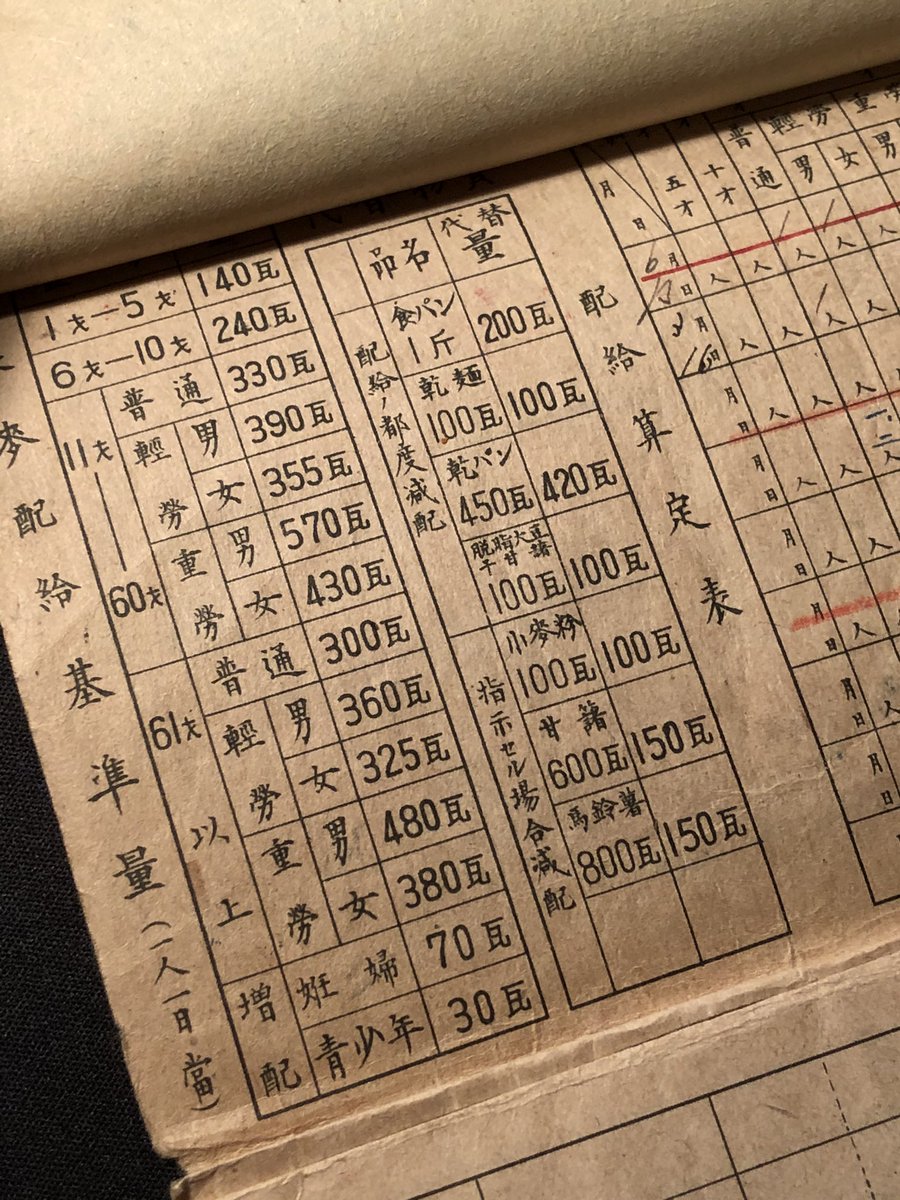 麥配給基準量(一人一日當)
1才—5才 140瓦
6才—10才 240瓦
11才—60才
普通 330瓦
輕勞 男 390瓦
女 355瓦
重勞 男 570瓦
女 430瓦
61才以上
普通 300瓦
輕勞 男 360瓦
女 325瓦
重勞 男 480瓦
女 380瓦
增配
妊婦 70瓦
青少年 30瓦
品名 代替量
配給ノ都度減配
食パン 1斤 200瓦
乾麺 100瓦 100瓦
乾パン 450瓦 420瓦
脱脂大豆
干甘藷
100瓦 100瓦
指示セル場合減配
小麥粉 100瓦 100瓦
甘藷 600瓦 150瓦
馬鈴薯 800瓦 150瓦
配給算定表
月 日 五才 十才 普通 輕勞 男 女 重勞 男
6月 日 人 人 人 人 人
月 日 人 人 人 人 人
月 日 人 人 人 人
月 日 人 人 人
月 日 人 人
月 日 人 人
月 日 人
月 日